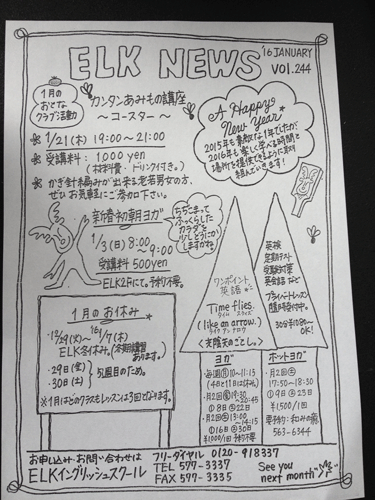 ELK NEWS
'16 JANUARY
VOL.244
1月の
おとな
クラブ活動
カンタンあみもの講座
～コースター～
1/21(木) 19:00～21:00
受講料: 1,000 yen
(材料費・ドリンク付き。)
かぎ針編みが出来る老若男女の方、
ぜひお気軽にご参加下さい。
A Happy
New Year
2015年も素敵な1年でしたが、
2016年も楽しく学べる時間と
場所を提供できるように取り
組んでいきます!
新春初の朝ヨガ
1/3(日) 8:00～9:00
受講料500yen
ELK2Fにて。予約不要。
ちぢこまって
ふっくらした
カラダを
少しどうにか
しますかね。
ワンポイント
英語
Time flies.
タイム フライズ
(like an arrow.)
ライク アン アロウ
＜光陰矢のごとし。＞
英検
定期テスト
受験対策
英会話など
プライベートレッスン
随時受付中。
30分¥1080～
OK!
1月のお休み
・12/29(火)～'16 1/7(木)
ELK冬休み。(冬期講習
あります。)
・29日(金)
・30日(土)
5週目のため。
※1月はどのクラスもレッスンは3回となります。
ヨガ
・毎週(月)10～11:15
(4日と11日は休み)
・月2回(金)19:30
～20:45
①8日②22日
・月2回(土)13:00
～14:15
①16日②30日
¥1000/1回 予約不要
ホットヨガ
・月2回(土)
17:50～18:30
①9日②23日
¥1,500/1回
要予約:和みの湯
563-6344
お申し込み・お問い合わせは
ELKイングリッシュスクール
フリーダイヤル 0120-918337
TEL 577-3337
FAX 577-3335
See you
next month